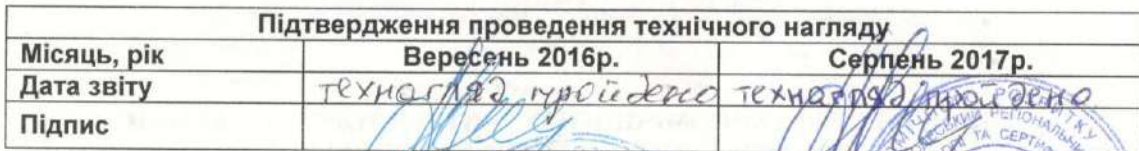 Підтвердження проведення технічного нагляду
Місяць, рік Вересень 2016р. Серпень 2017р.
Дата звіту технагляд пройдено технагляд пройдено
Підпис
РЕГІОНАЛЬНИЙ
ТА СЕРТИ